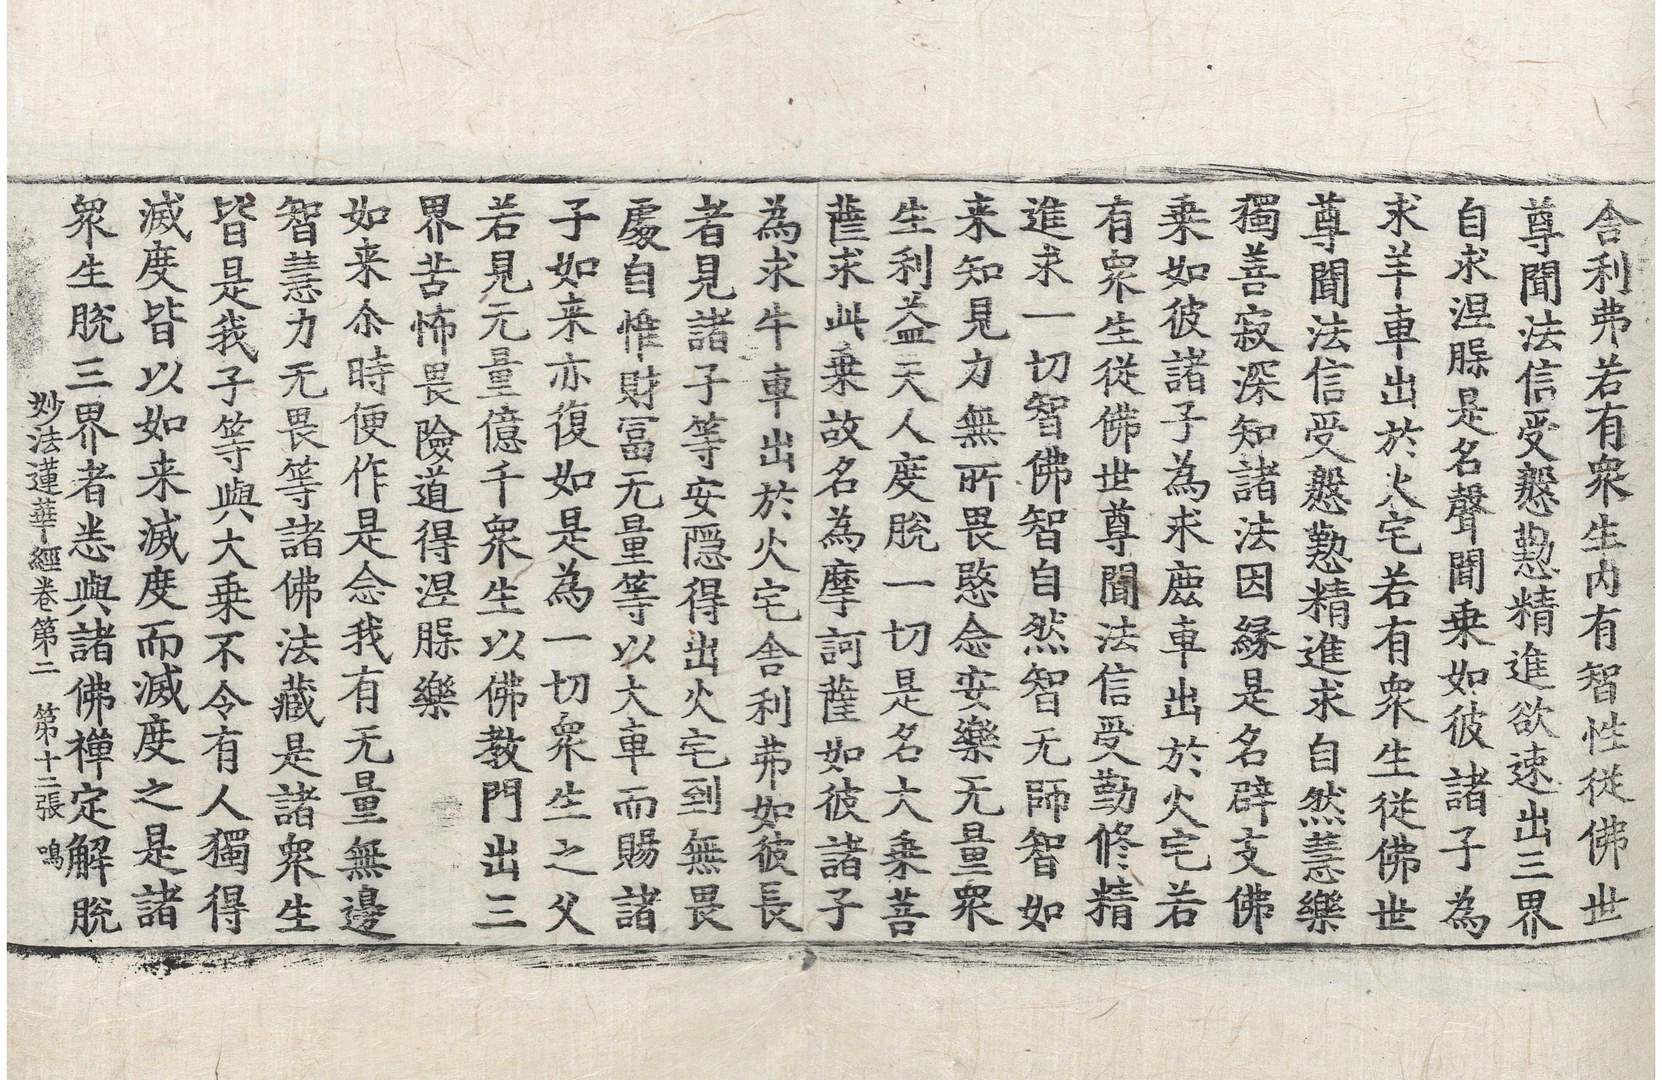 舎利弗若有衆生内有智性従佛世
尊聞法信受慇懃精進欲速出三界
自求涅槃是名聲聞乗如彼諸子為
求羊車出於火宅若有衆生従佛世
尊聞法信受慇懃精進求自然慧樂
獨善寂深知諸法因縁是名辟支佛
乗如彼諸子為求鹿車出於火宅若
有衆生従佛世尊聞法信受勤修精
進求一切智佛智自然智无師智如
来知見力無所畏愍念安樂无量衆
生利益天人度脫一切是名大乗菩
薩求此乗故名為摩訶薩如彼諸子
為求牛車出於火宅舎利弗如彼長
者見諸子等安隱得出火宅到無畏
處自惟財富无量等以大車而賜諸
子如来亦復如是為一切衆生之父
若見元量億千衆生以佛教門出三
界苦怖畏險道得涅槃樂
如来尒時便作是念我有无量無邊
智慧力无畏等諸佛法藏是諸衆生
皆是我子等與大乗不令有人獨得
滅度皆以如来滅度而滅度之是諸
衆生脫三界者悉與諸佛禪定解脫
妙法蓮華經卷第二 第十二張 鳴